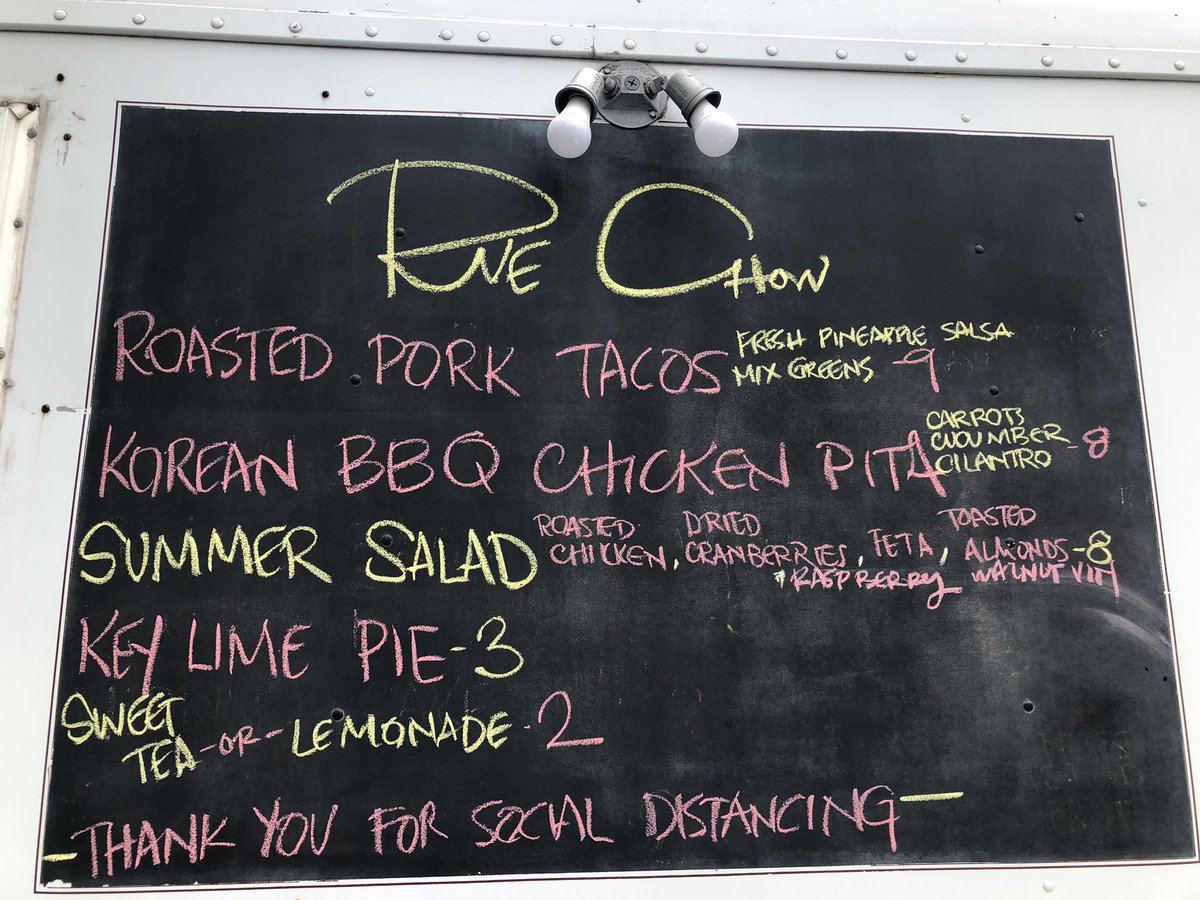 RUE CHOW
ROASTED PORK TACOS FRESH PINEAPPLE SALSA
MIX GREENS -9
KOREAN BBQ CHICKEN PITA CARROTS
CUCUMBER -8
CILANTRO
SUMMER SALAD ROASTED CHICKEN, DRIED CRANBERRIES, FETA, TOASTED ALMONDS -8
RASPBERRY WALNUT VIN
KEY LIME PIE -3
SWEET TEA -OR- LEMONADE -2
-THANK YOU FOR SOCIAL DISTANCING-